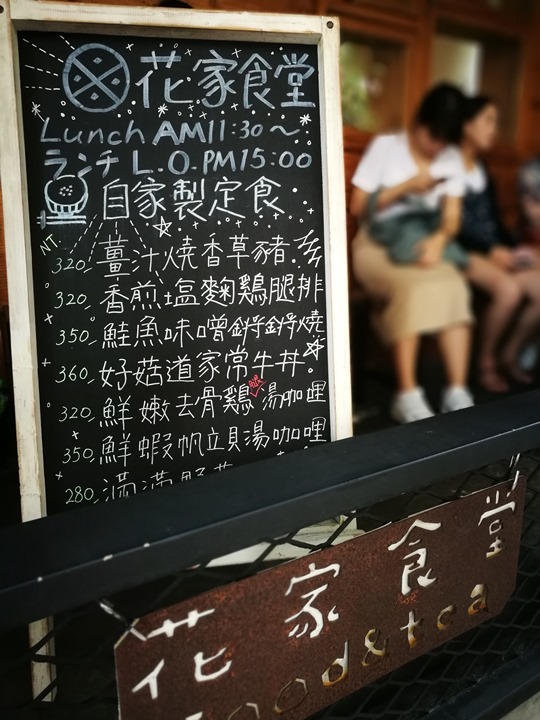 花家食堂
Lunch AM11:30～
ランチ L.O.PM15:00
自家製定食
NT.
320. 薑汁燒香草豬.
320. 香煎塩麴鷄腿排
350. 鮭魚味噌鋍鋍燒
360. 好菇道家常牛丼.
320. 鮮嫩去骨鷄湯咖哩
350. 鮮蝦帆立貝湯咖哩
280. 滿滿野菜
花家食堂
food&tea